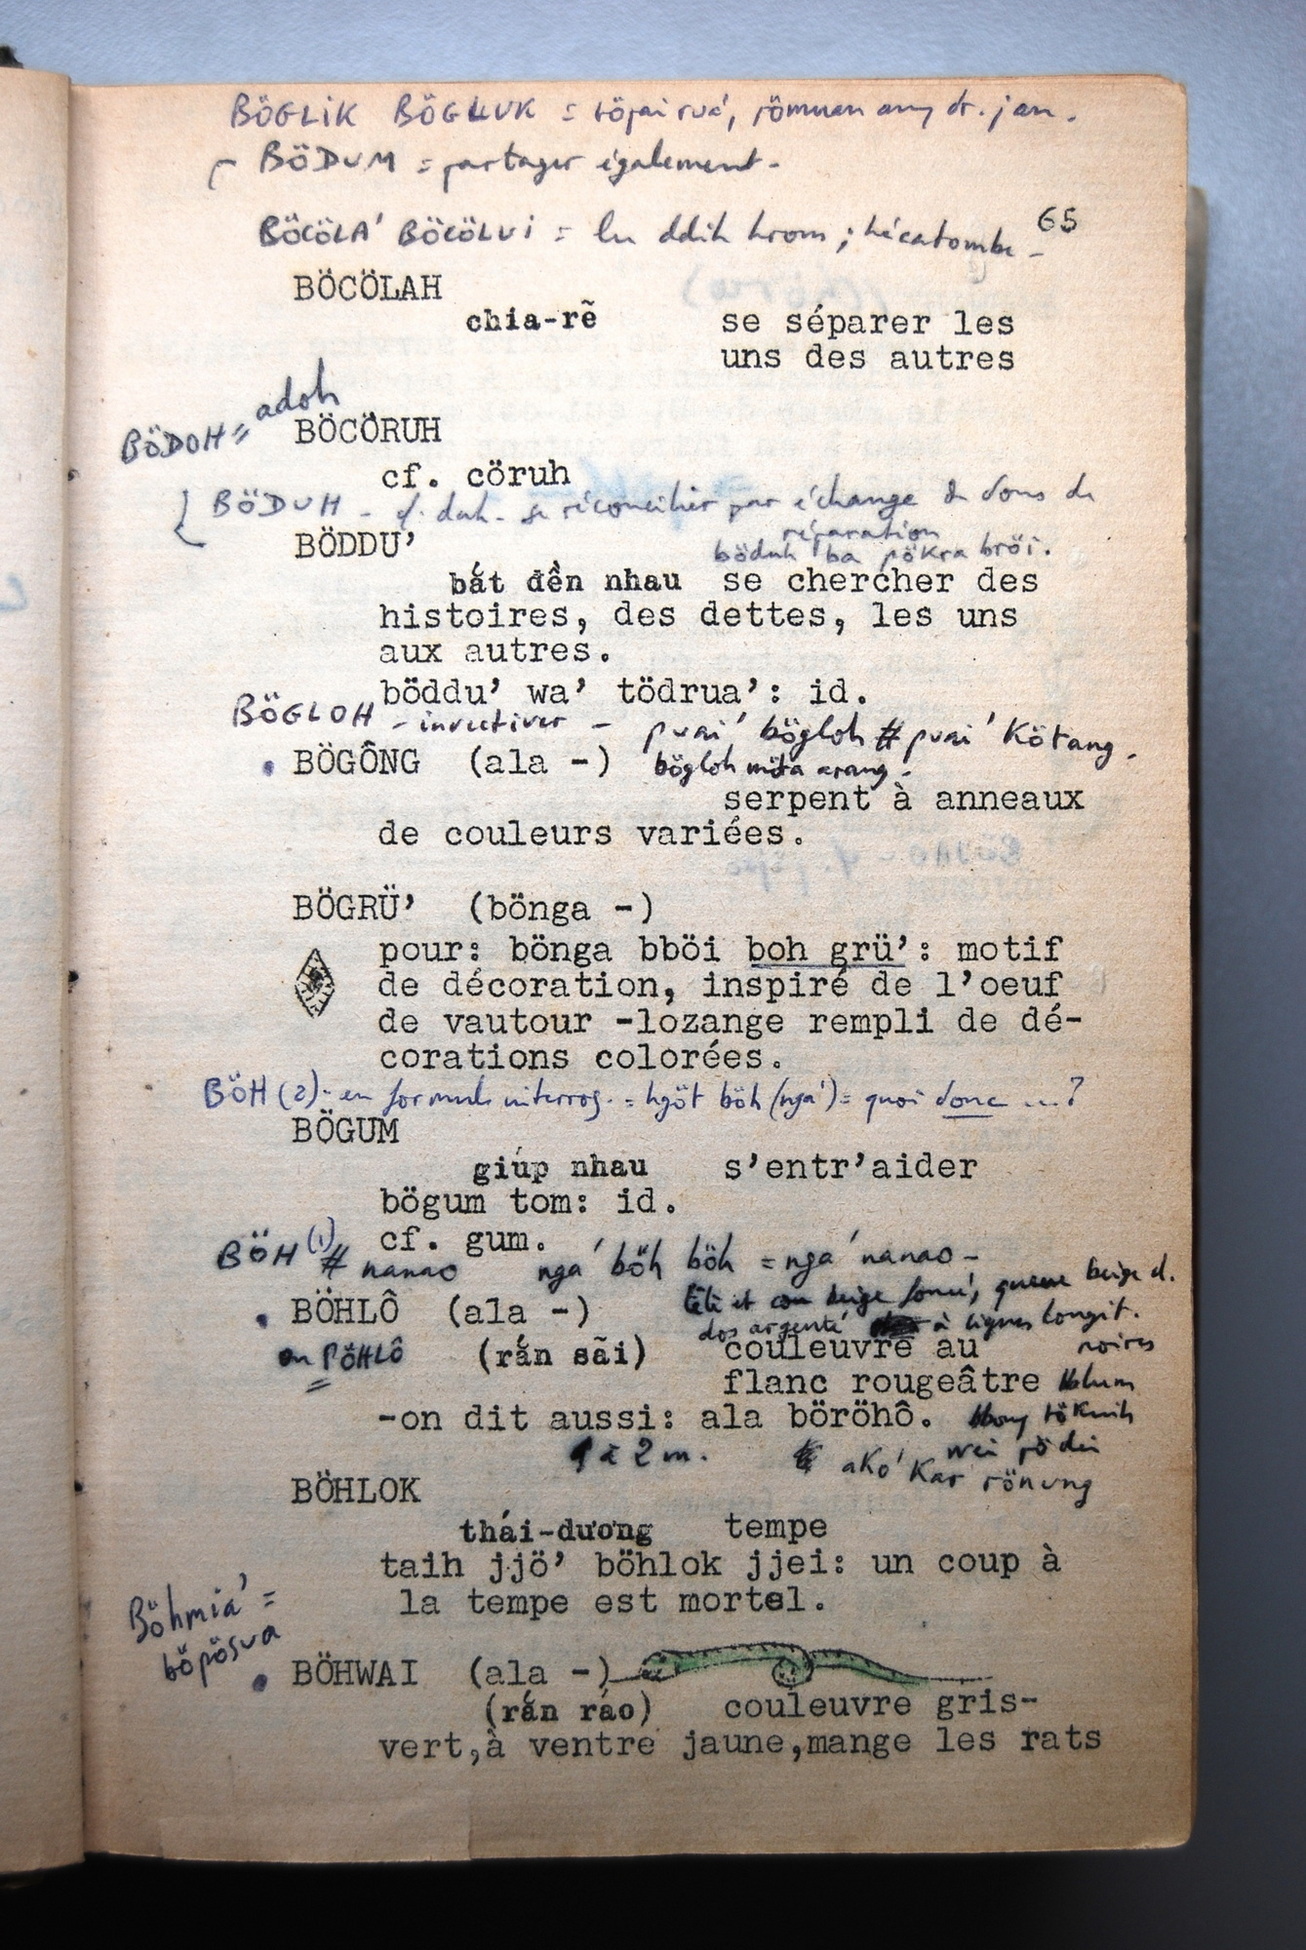 BÖGLIK BÖGLUK =
BÖDUM = partager également -
BÖCÖLA' BÖCÖLUI = lu ddih hrom ; hécatombe -
65
BÖCÖLAH
chia-rẽ se séparer les
uns des autres
BÖDOH = adoh
BÖCÖRUH
cf. cöruh
BÖDUH - cf. duh - se réconcilier par échange de dons de
réparation
böduh ba pökra bröi.
BÖDDU'
bắt đền nhau se chercher des
histoires, des dettes, les uns
aux autres.
böddu' wa' tödrua': id.
BÖGLOH - invectiver - puai' bögloh # puai' Kötang -
BÖGÔNG (ala -) bögloh möta arang -
serpent à anneaux
de couleurs variées.
BÖGRÜ' (bönga -)
pour: bönga bböi boh grü': motif
de décoration, inspiré de l'oeuf
de vautour -lozange rempli de dé-
corations colorées.
BÖH (2) - en formule interrog. = hgöt böh (nga') = quoi donc ...?
BÖGUM
giúp nhau s'entr'aider
bögum tom: id.
cf. gum.
BÖH (1) # nanao nga' böh böh = nga' nanao -
Tête et cou beige foncé, queue beige d.
BÖHLÔ (ala -)
dos argenté à lignes longit.
noires
ou PÖHLÔ (rắn sãi) couleuvre au
flanc rougeâtre
-on dit aussi: ala böröhô.
1 à 2 m. akö' Kar rönung
BÖHLOK
thái-dương tempe
taih jjö' böhlok jjei: un coup à
la tempe est mortel.
Böhmia' =
böpösua
BÖHWAI (ala -)
(rắn ráo) couleuvre gris-
vert,à ventre jaune,mange les rats